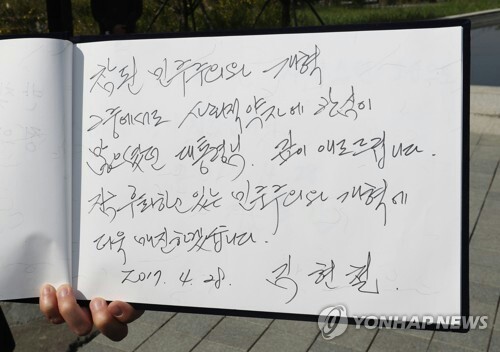 참된 민주주의와 개혁
그중에서도 사회적 약자에 관심이
많으셨던 대통령님. 깊이 애도드립니다.
작금 후퇴하고 있는 민주주의와 개혁에
더욱 매진하겠습니다.
2017. 4. 28. 김현철.
YONHAP NEWS